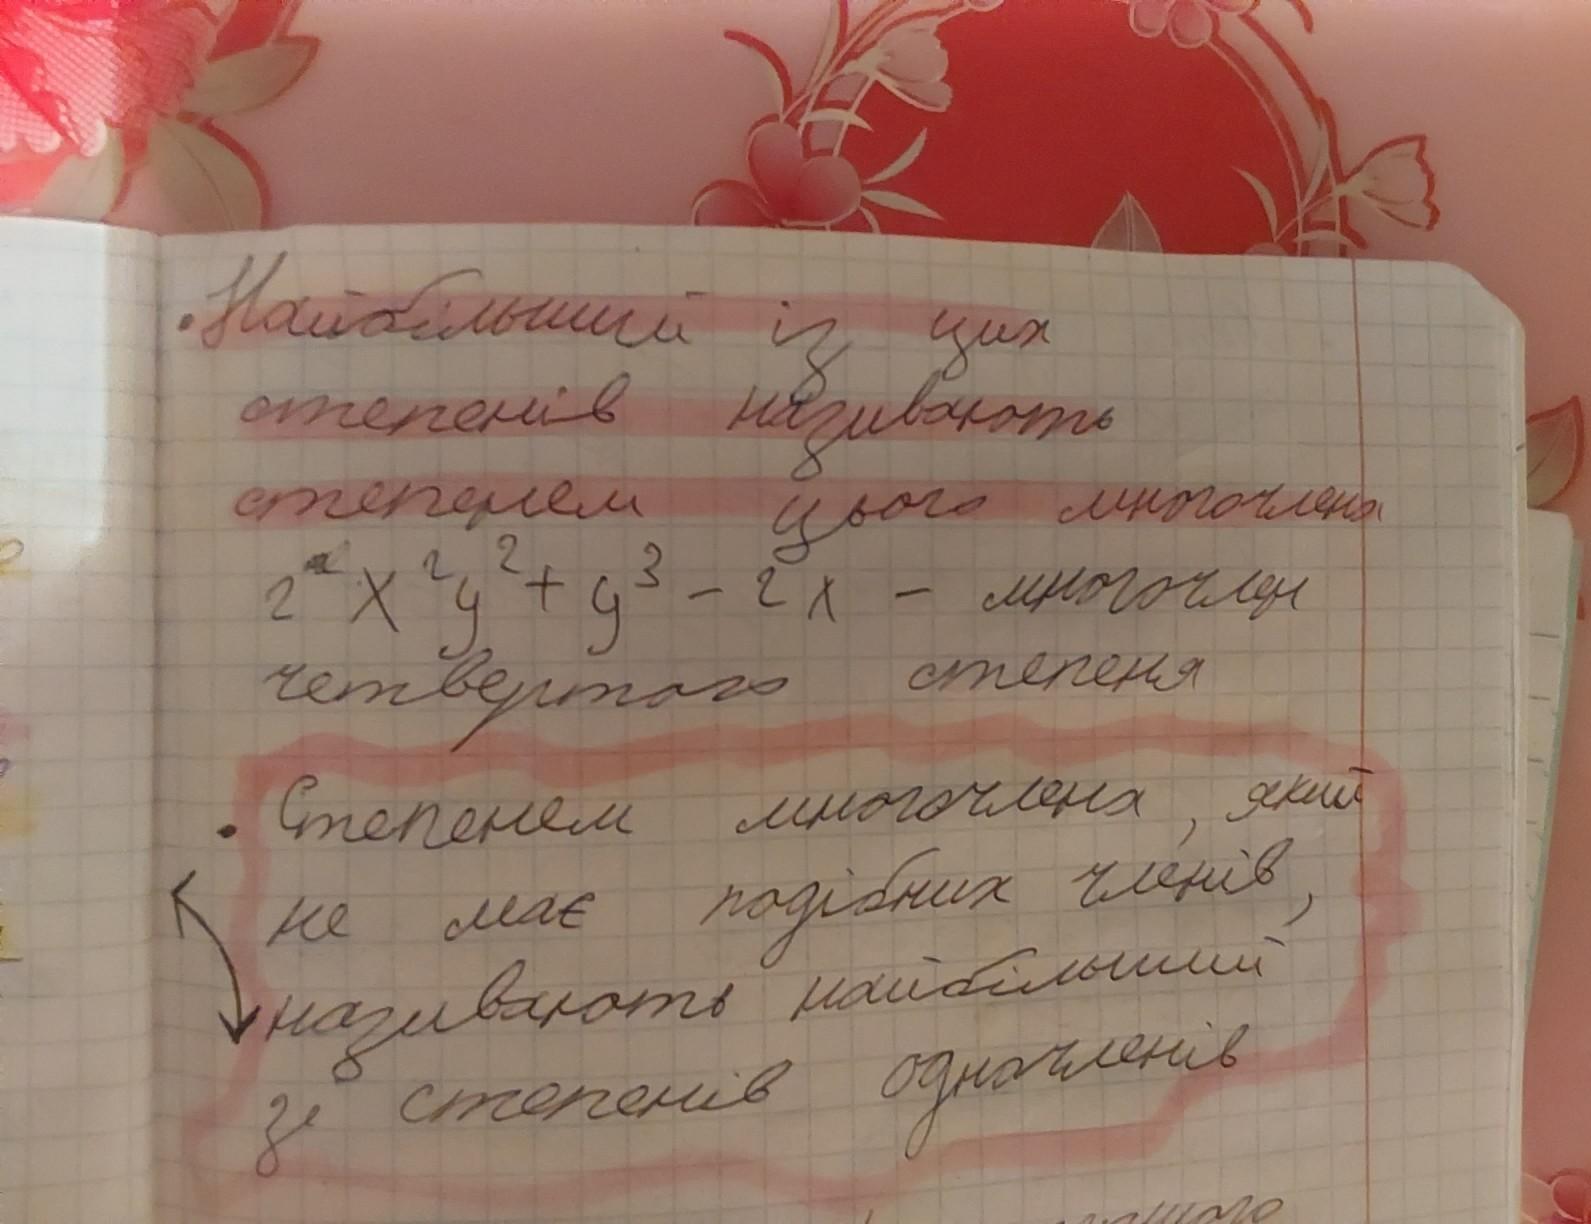 • Найбільший із цих
степенів називають
степенем цього многочлена
2 x²y² + y³ - 2x - многочлен
четвертого степеня
• Степенем многочлена, який
не має подібних членів,
називають найбільший
зі степенів одночленів